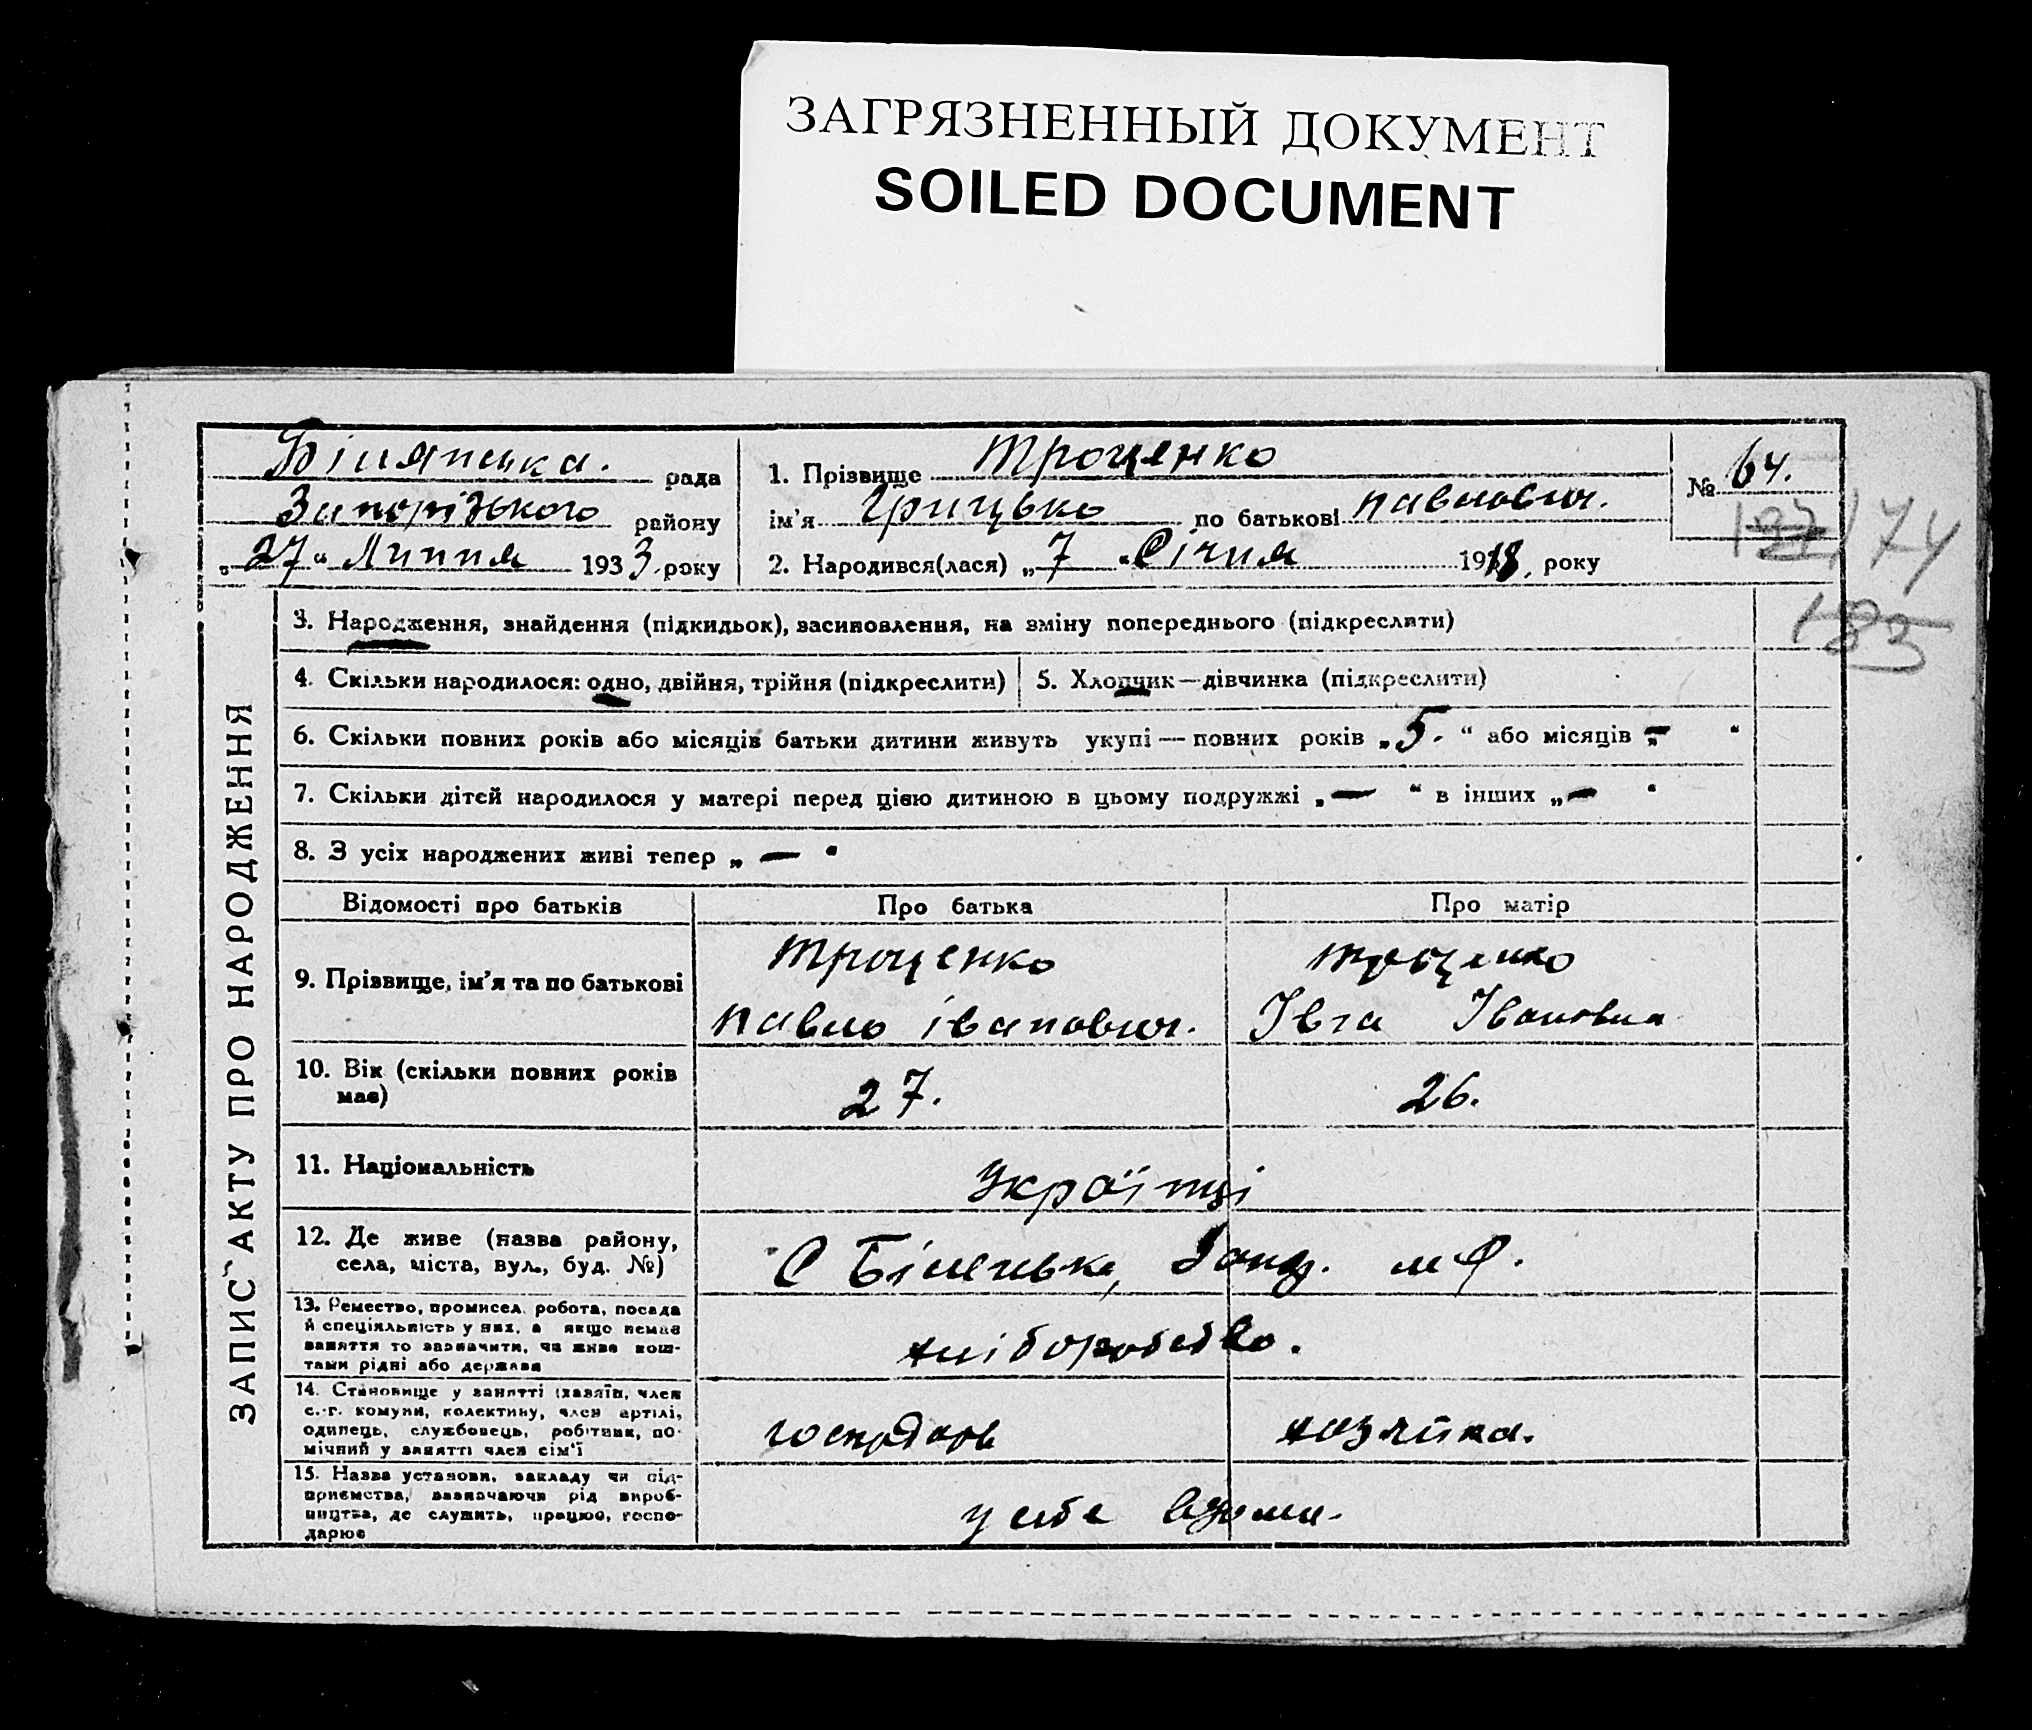 ЗАГРЯЗНЕННЫЙ ДОКУМЕНТ
SOILED DOCUMENT
Біляпська. рада
Запорізького району
„27“ Липня 1933. року
1. Прізвище Троценко
ім’я Грицько по батькові Павлович.
2. Народився(лася) „7“ Січня 1918, року
№ 64.
174
183
ЗАПИС АКТУ ПРО НАРОДЖЕННЯ
3. Народження, знайдення (підкидьок), засиновлення, на зміну попереднього (підкреслити)
4. Скільки народилося: одно, двійня, трійня (підкреслити)
5. Хлопчик—дівчинка (підкреслити)
6. Скільки повних років або місяців батьки дитини живуть укупі — повних років „5.“ або місяців „—“
7. Скільки дітей народилося у матері перед цією дитиною в цьому подружжі „—“ в інших „—“
8. З усіх народжених живі тепер „—“
Відомості про батьків
Про батька
Про матір
9. Прізвище, ім’я та по батькові
Троценко
Павло Іванович.
Троценко
Івга Івановна
10. Вік (скільки повних років
має)
27.
26.
11. Національність
Українці
12. Де живе (назва району,
села, міста, вул., буд. №)
С Біленьке,
13. Ремество, промисел, робота, посада
й спеціяльність у них, а якщо немає
заняття то зазначити, чи живе кош-
тами рідні або держави
хліборобство.
14. Становище у занятті (хазяїн, член
с.-г. комуни, колективу, член артілі,
одинець, службовець, робітник, по-
мічний у занятті член сім’ї
господарь
хозяйка.
15. Назва установи, закладу чи під-
приємства, зазначаючи рід вироб-
ництва, де служить, працює, госпо-
дарює
у себе вдома.